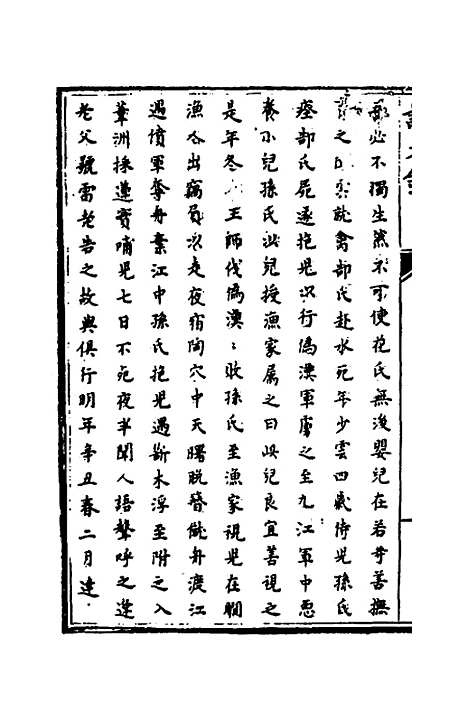 郜必不獨生然不可使花氏無後嬰兒在若等善撫
育之 就禽郜氏赴水死年少雲四歲侍兒孫氏
瘞郜氏屍遂抱兒以行僞漢軍虜之至九江軍中惡
養小兒孫氏以兒授漁家屬之曰此兒良宜善視之
是年冬 王師伐僞漢漢敗孫氏至漁家視兒在闚
漁者出竊負以走夜宿陶穴中天曙脱簪僦舟渡江
遇僨軍奪舟棄江中孫氏抱兒遇斷木浮至附之入
葦洲採蓮實哺兒七日不死夜半聞人語聲呼之逢
老父號雷老告之故與俱行明年辛丑春二月達